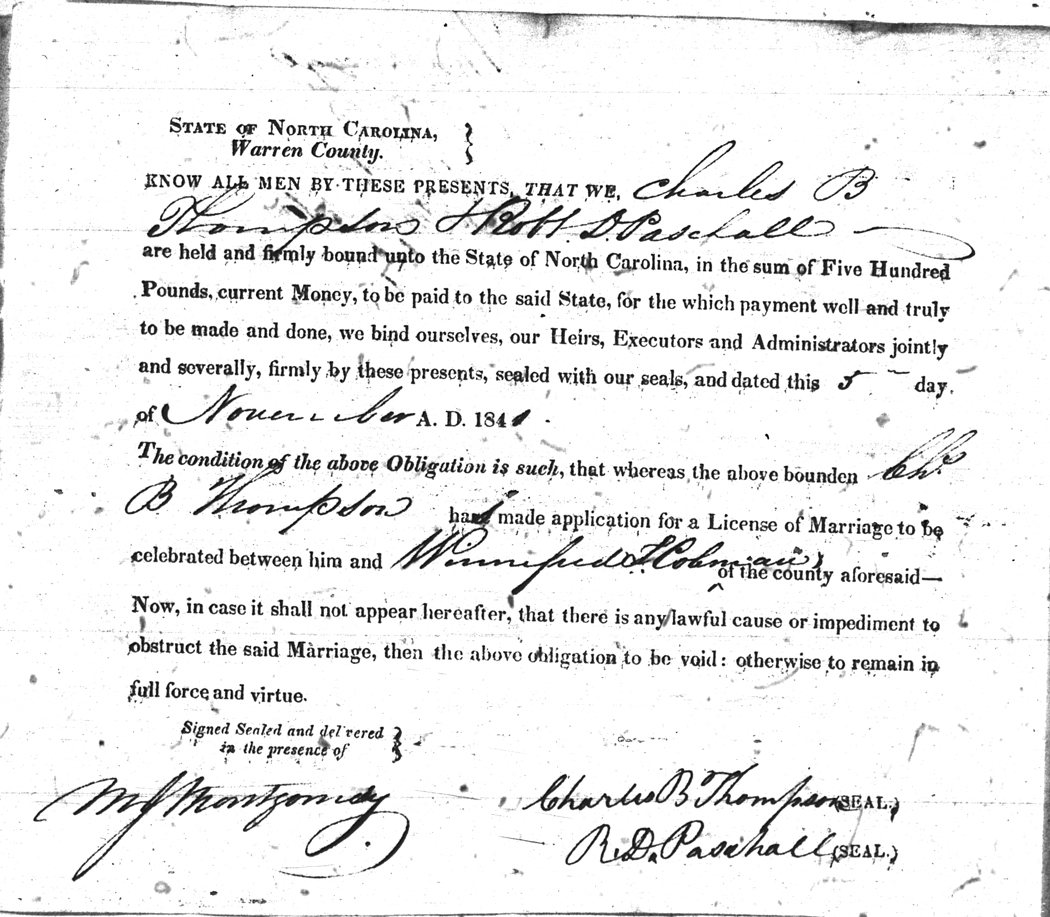 STATE OF NORTH CAROLINA,
Warren County.
KNOW ALL MEN BY THESE PRESENTS, THAT WE, Charles B
Thompson & Robt. D. Paschall
are held and firmly bound unto the State of North Carolina, in the sum of Five Hundred
Pounds, current Money, to be paid to the said State, for the which payment well and truly
to be made and done, we bind ourselves, our Heirs, Executors and Administrators jointly
and severally, firmly by these presents, sealed with our seals, and dated this 5 day
of November A. D. 1841.
The condition of the above Obligation is such, that whereas the above bounden Chs.
B Thompson has made application for a License of Marriage to be
celebrated between him and Winnefred Holeman of the county aforesaid—
Now, in case it shall not appear hereafter, that there is any lawful cause or impediment to
obstruct the said Marriage, then the above obligation to be void: otherwise to remain in
full force and virtue.
Signed Sealed and del'vered
in the presence of
M J Montgomery
Charles B Thompson (SEAL.)
R. D. Paschall (SEAL.)